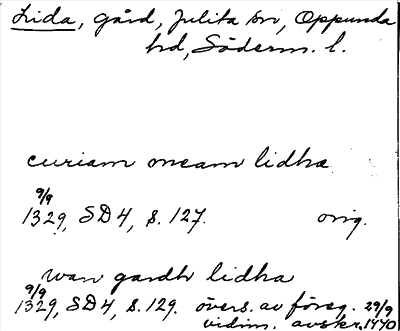 Lida, gård, Julita sn, Oppunda
hd, Söderm. l.
curiam meam lidha
9/9
1329, SD4, s. 127. orig.
wan gardh lidha
9/9
1329, SD4, s. 129. övers. av föreg. 29/9
vidim. avskr. 1440